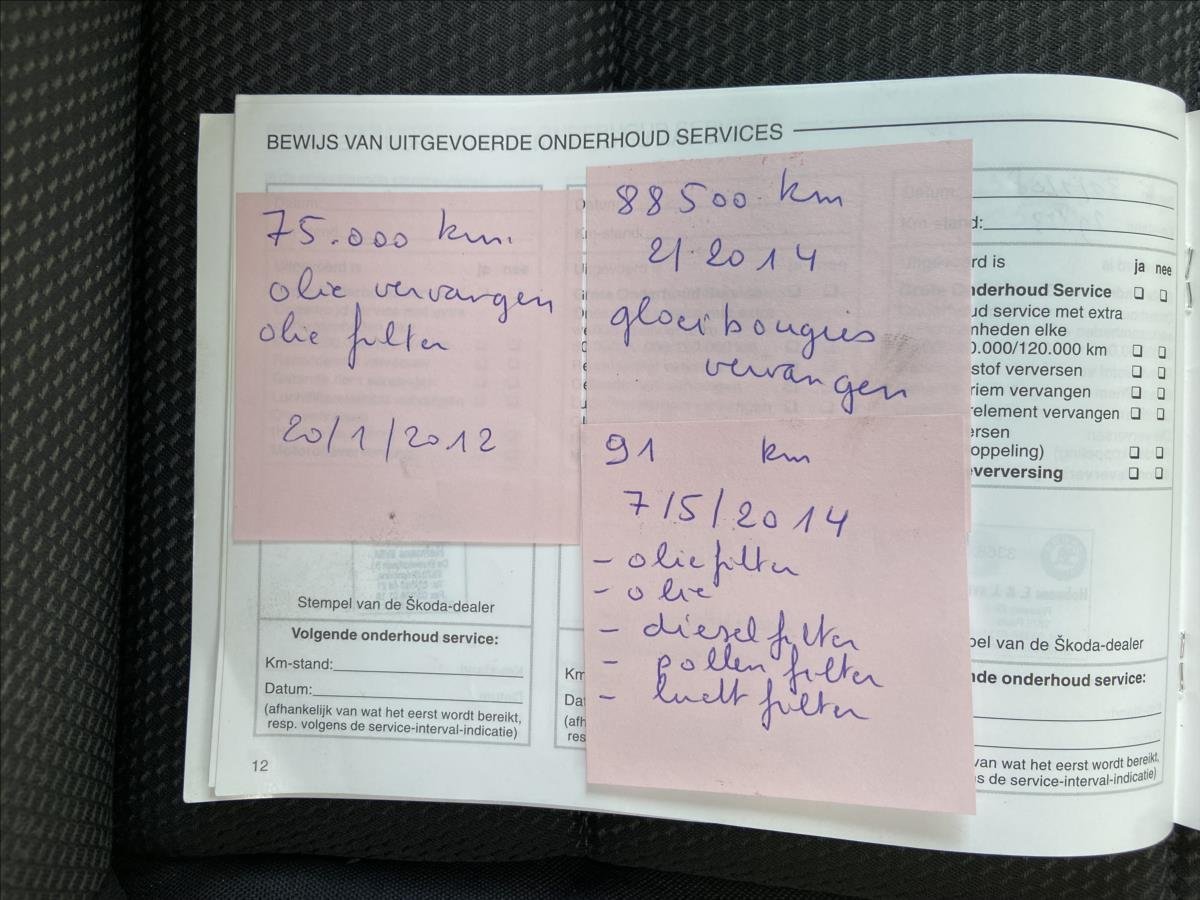 BEWIJS VAN UITGEVOERDE ONDERHOUD SERVICES
75.000 km.
olie vervangen
olie filter
20/1/2012
Stempel van de Škoda-dealer
Volgende onderhoud service:
Km-stand:
Datum:
(afhankelijk van wat het eerst wordt bereikt,
resp. volgens de service-interval-indicatie)
12
88500 km
2/ 2014
gloeibougies
vervangen
91 km
7/5/2014
- olie filter
- olie
- diesel filter
- pollen filter
- lucht filter
Km
Da
(afh
res
Datum:
Km-stand:
rd is ja nee
nderhoud Service
ud service met extra
nheden elke
0.000/120.000 km
stof verversen
riem vervangen
relement vervangen
ersen
oppeling)
verversing
pel van de Škoda-dealer
nde onderhoud service:
van wat het eerst wordt bereikt,
s de service-interval-indicatie)